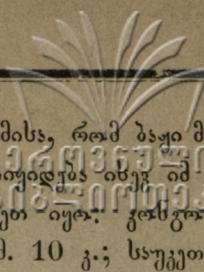 მისა, რომ ბაჟი მ
იყიდება ისევ იმ
ეთ იყო: ჟონგო
მ. 10 კ.; საუკეთ